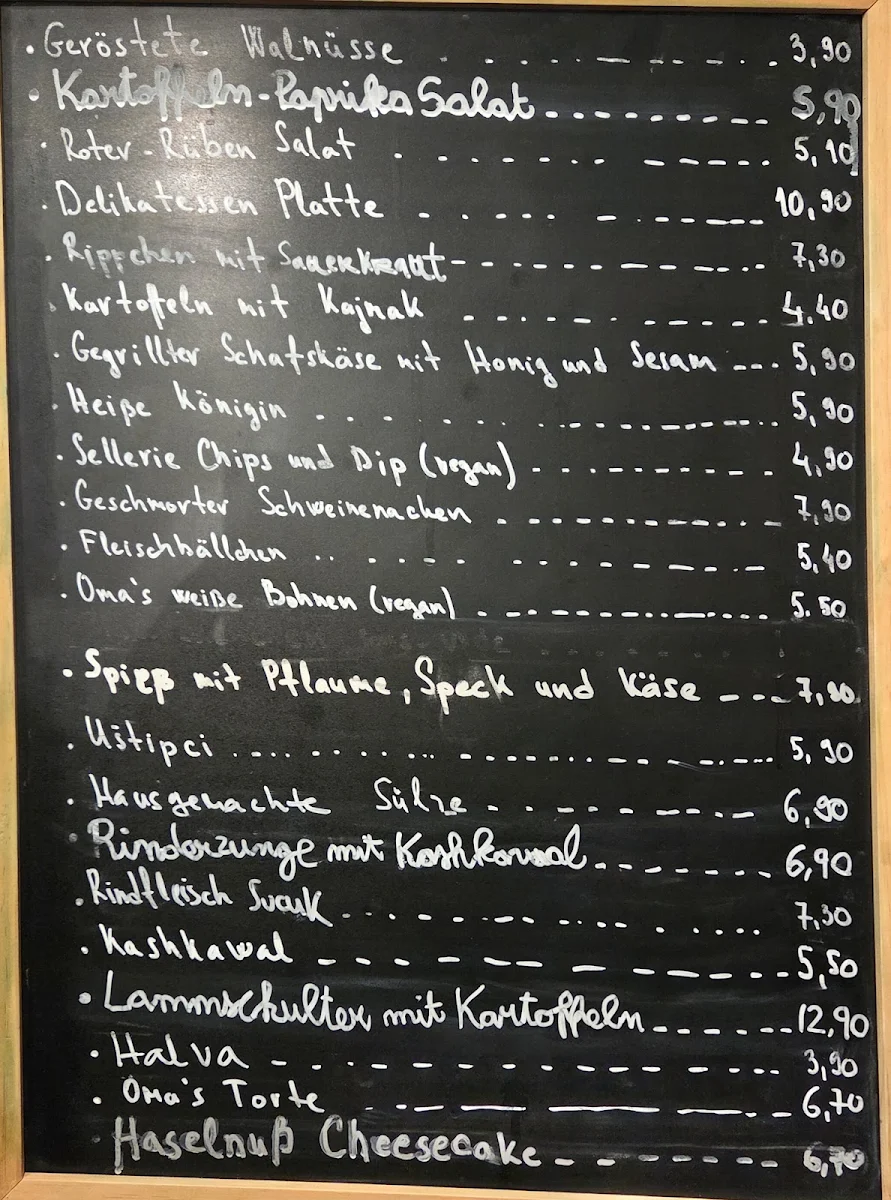 · Geröstete Walnüsse . . . . . — — — - . 3,90
· Kartoffeln-Paprika Salat . . - - - - - - - - 5,90
· Roter-Rüben Salat . . . . . . . — — — - . 5,10
· Delikatessen Platte . . . . . — . — — — 10,90
· Rippchen mit Sauerkraut - - . . . . - - — - - . . 7,30
· Kartoffeln mit Kajmak . . - - . - — — — - 4.40
· Gegrillter Schafskäse mit Honig und Sesam - - - . 5,90
· Heiße Königin . . . . . . . . . - - - - - . . 5,90
· Sellerie Chips und Dip (vegan) - . . - . - - - - - 4,90
· Geschmorter Schweinenacken . - - - - - — - - . - 7,90
· Fleischbällchen . . . . . . . . - - - — - . - 5,40
· Oma's weiße Bohnen (vegan) . - - - - - - . . - - - 5.50
· Spieß mit Pflaume, Speck und Käse - - - - 7,90
· Uštipci . . . . . . . . . . . . - - - - - - - - . . . 5,90
· Hausgemachte Sülze - . - - - — — - 6,90
· Rinderzunge mit Kashkawal . - - - - - - - 6,90
· Rindfleisch Sucuk . . . . - . - - — . . - - . . . . . 7,30
· Kashkawal - — — — — — — - - - - - 5,50
· Lammschulter mit Kartoffeln . - - - - - - 12,90
· Halva - . - - - - - - - — - - - - 3,90
· Oma's Torte . - - — — — — - - - 6,70
· Haselnuß Cheesecake - - - - - - - - 6,70